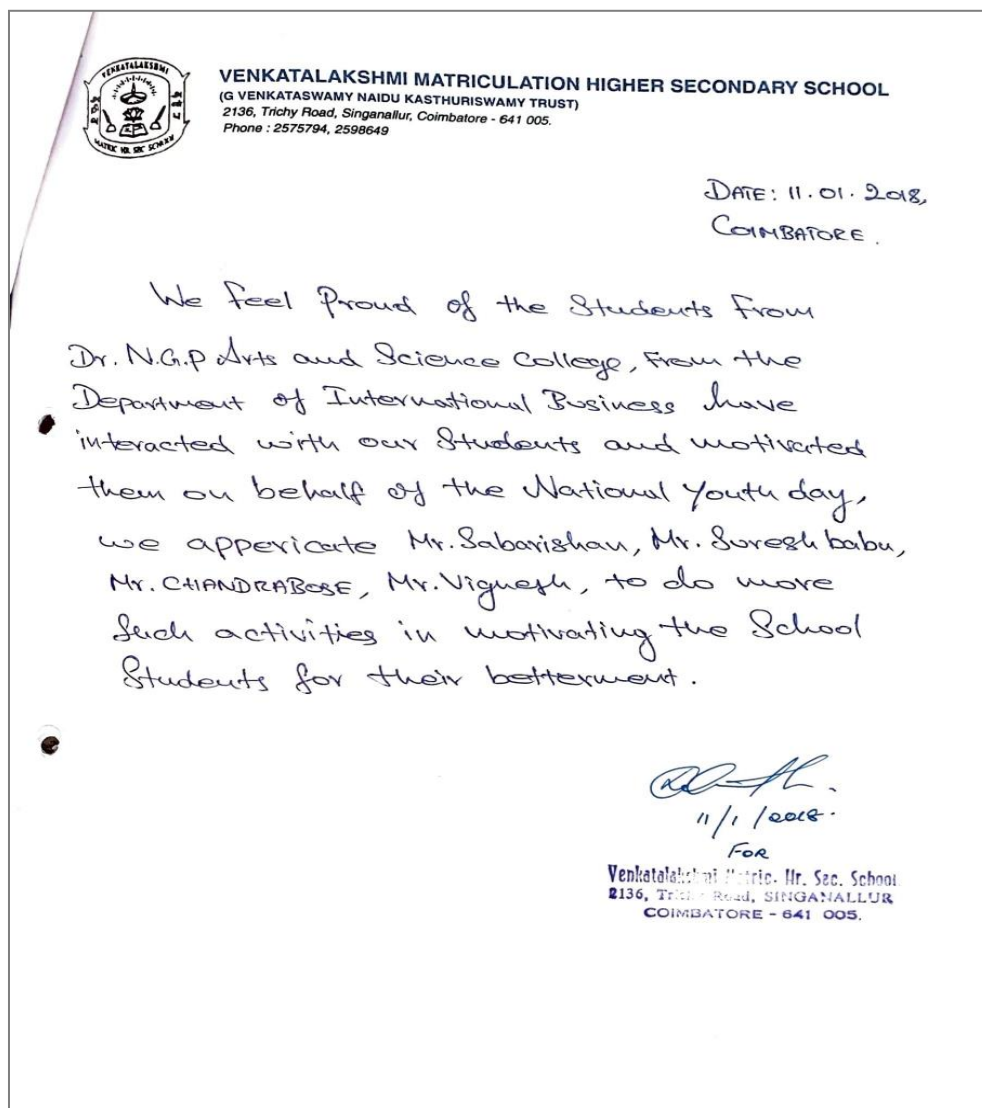 VENKATALAKSHMI
MATRIC HR. SEC SCHOOL
VENKATALAKSHMI MATRICULATION HIGHER SECONDARY SCHOOL
(G VENKATASWAMY NAIDU KASTHURISWAMY TRUST)
2136, Trichy Road, Singanallur, Coimbatore - 641 005.
Phone : 2575794, 2598649
DATE: 11.01.2018,
COIMBATORE.
We feel Proud of the Students From
Dr. N.G.P Arts and Science College, From the
Department of International Business have
interacted with our Students and motivated
them on behalf of the National Youth day,
we appericate Mr. Sabarishan, Mr. Suresh babu,
Mr. CHANDRABOSE, Mr. Vignesh, to do more
Such activities in motivating the School
Students for their betterment.
11/1/2018.
FOR
Venkatalakshmi Matric. Hr. Sec. School
2136, Trichy Road, SINGANALLUR
COIMBATORE - 641 005.